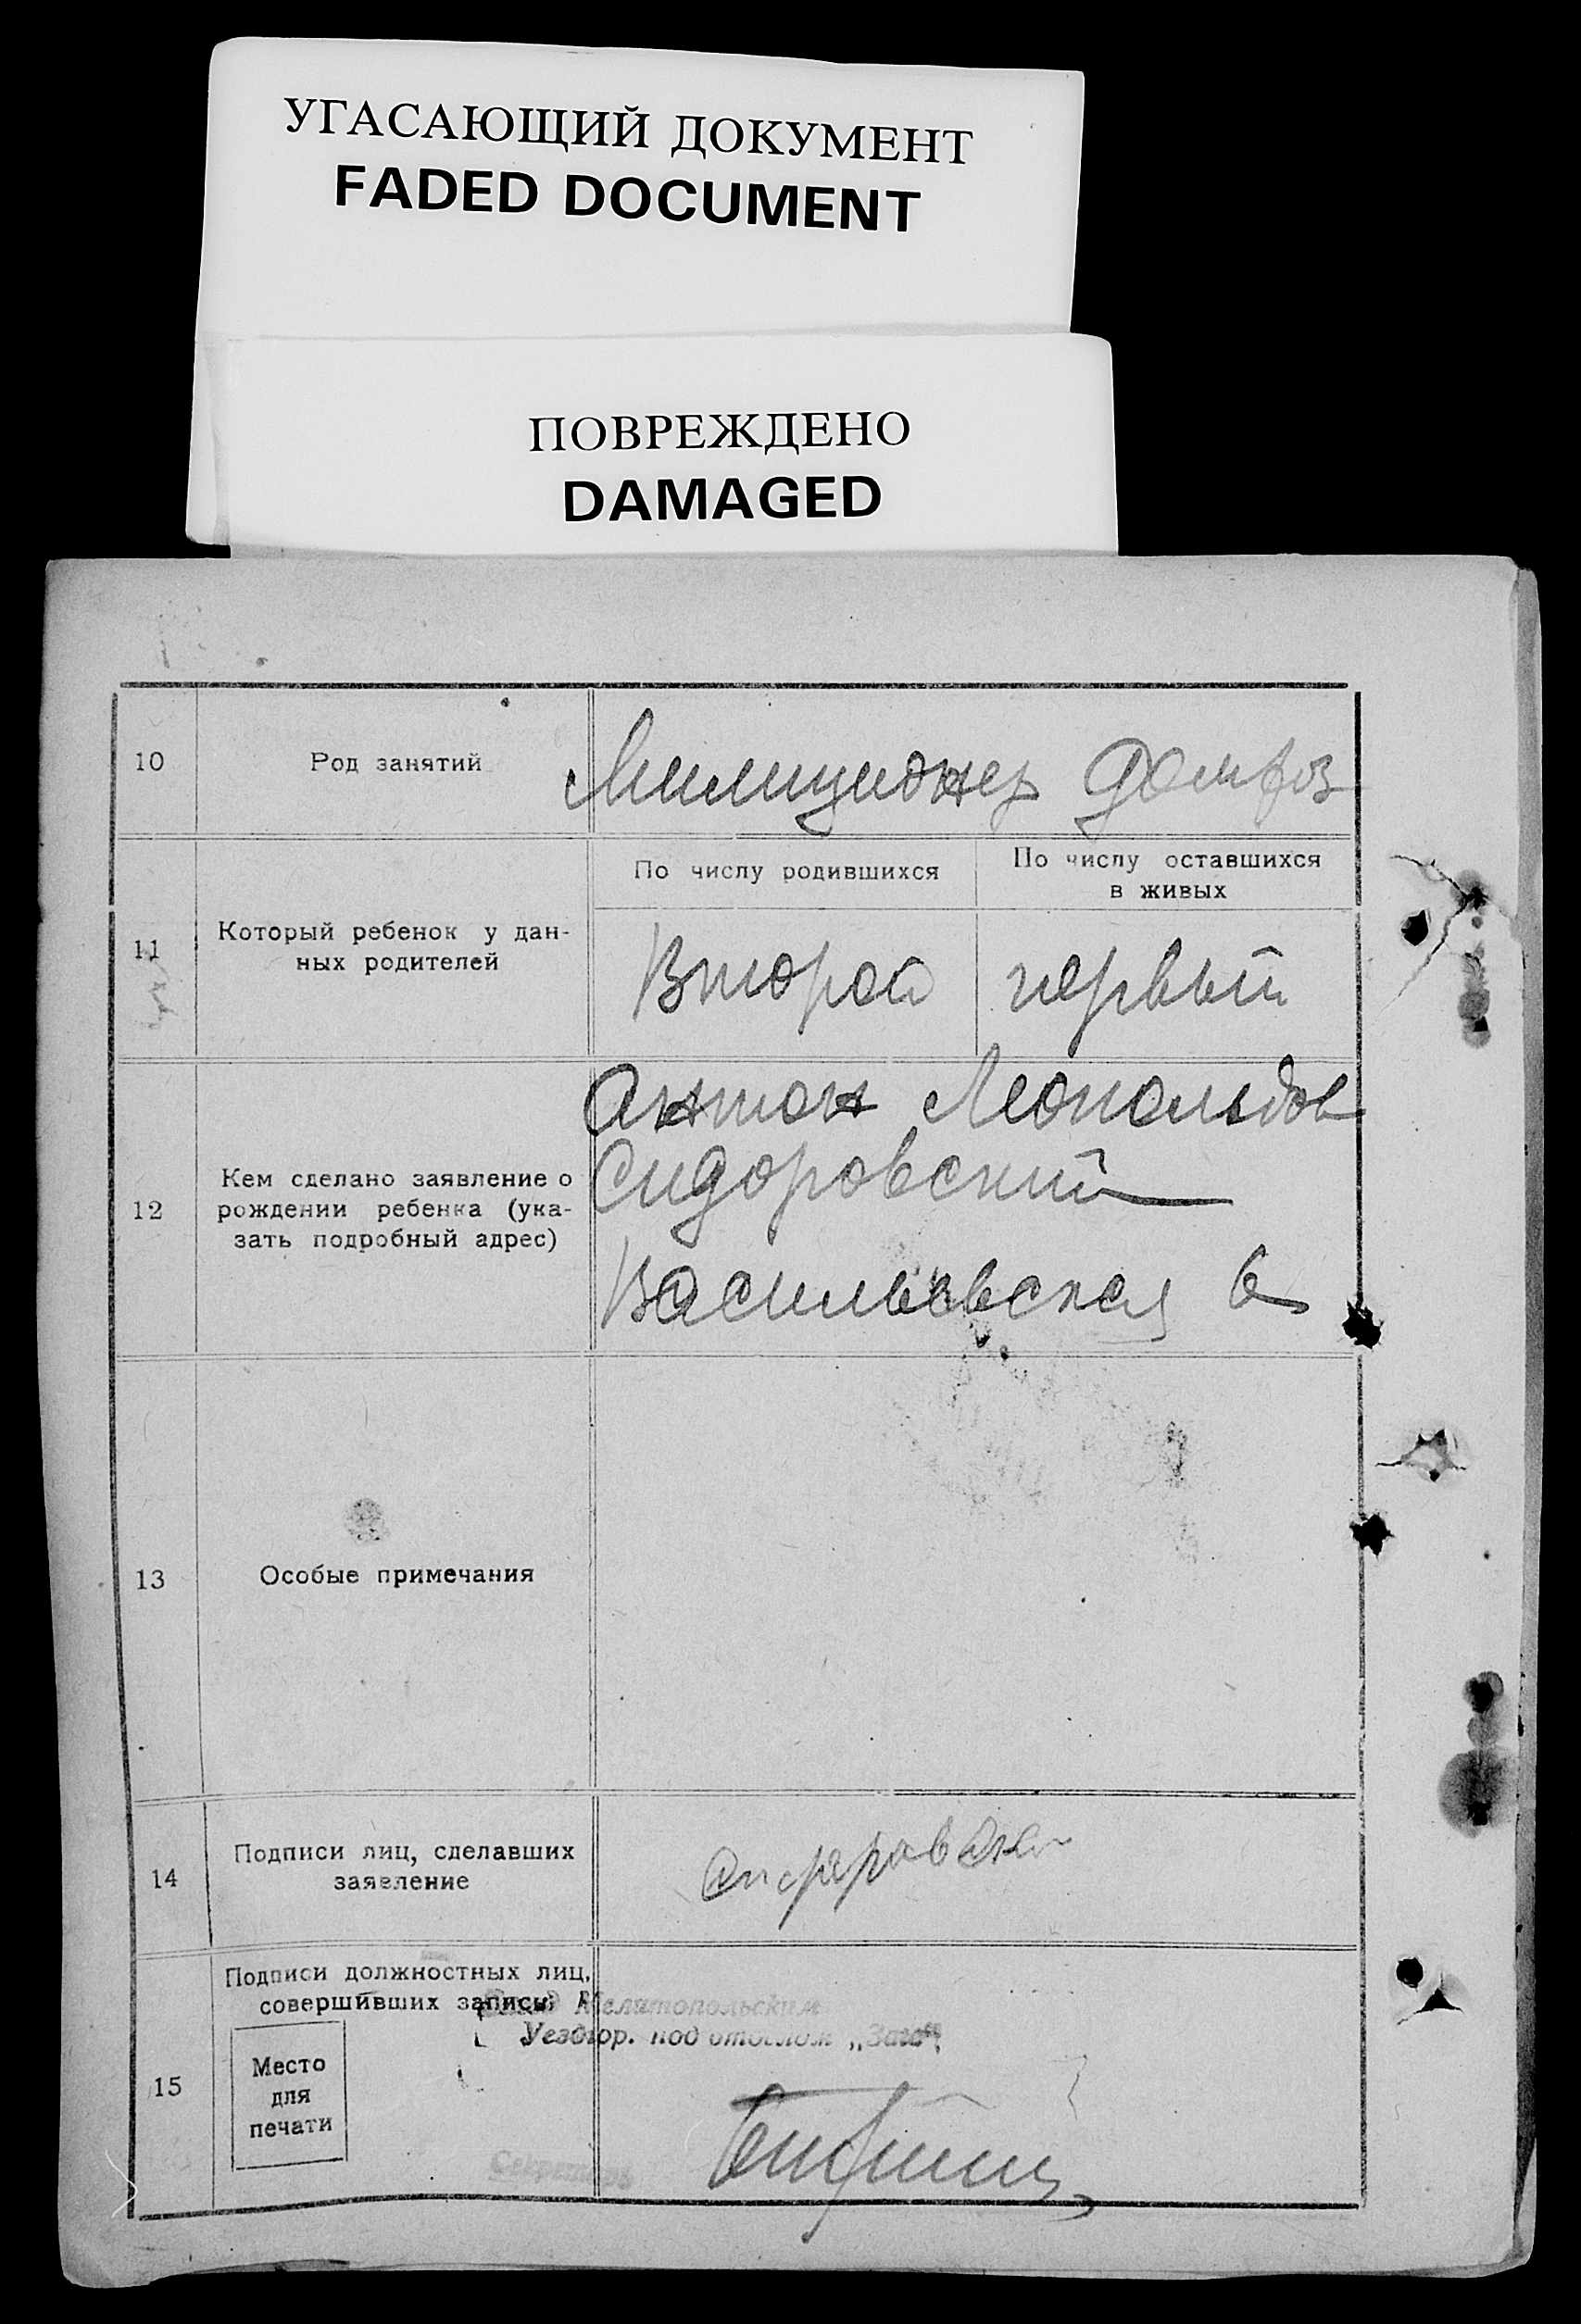 УГАСАЮЩИЙ ДОКУМЕНТ
FADED DOCUMENT
ПОВРЕЖДЕНО
DAMAGED
10
Род занятий
Милиционер Домхоз
11
Который ребенок у дан-
ных родителей
По числу родившихся
Второй
По числу оставшихся
в живых
первый
12
Кем сделано заявление о
рождении ребенка (ука-
зать подробный адрес)
Антон Леопольдов
Сидоровский
Васильевская 6
13
Особые примечания
14
Подписи лиц, сделавших
заявление
15
Подписи должностных лиц,
совершивших запись:
Место
для
печати
Мелитопольским
Уездгор. под отделом „Загс“
Секретарь